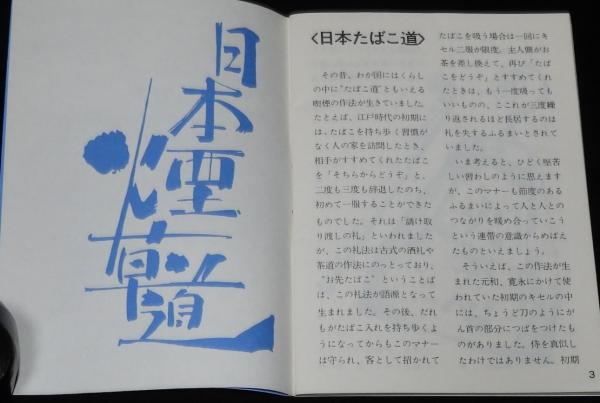 日本煙草道
〈日本たばこ道〉
その昔、わが国にはくらし
の中に“たばこ道”ともいえる
喫煙の作法が生きていました。
たとえば、江戸時代の初期に
は、たばこを持ち歩く習慣が
なく人の家を訪問したとき、
相手がすすめてくれたたばこ
を「そちらからどうぞ」と、
二度も三度も辞退したのち、
初めて一服することができた
ものでした。それは「請け取
り渡しの礼」といわれました
が、この礼法は古式の酒礼や
茶道の作法にのっとっており、
“お先たばこ”ということば
は、この礼法が語源となって
生まれました。その後、だれ
もがたばこ入れを持ち歩くよ
うになってからもこのマナー
は守られ、客として招かれて
たばこを吸う場合は一回にキ
セル二服が限度。主人側がお
茶を差し換えて、再び「たば
こをどうぞ」とすすめてくれ
たときは、もう一度吸っても
いいものの、ここれが三度繰
り返されるほど長居するのは
礼を失するふるまいとされて
いました。
いま考えると、ひどく堅苦
しい習わしのように思えます
が、このマナーも節度のある
ふるまいによって人と人との
つながりを暖め合っていこう
という連帯の意識からめばえ
たものといえましょう。
そういえば、この作法が生
まれた元和、寛永にかけて使
われていた初期のキセルの中
には、ちょうど刀のようにが
ん首の部分につばをつけたも
のがありました。侍を真似し
たわけではありません。初期
3